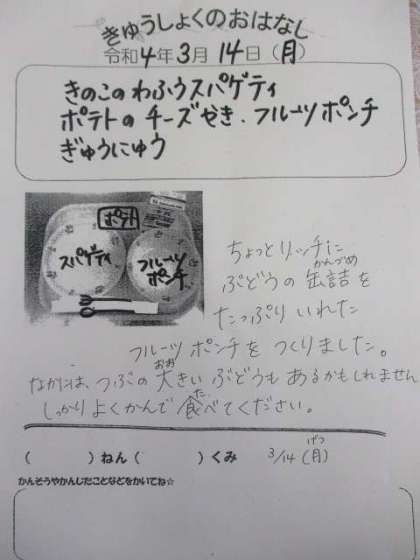 きゅうしょくのおはなし
令和4年3月14日(月)
きのこのわふうスパゲティ
ポテトのチーズやき・フルーツポンチ
ぎゅうにゅう
ポテト
スパゲティ
フルーツ
ポンチ
ちょっとリッチに
かんづめ
ぶどうの缶詰を
たっぷりいれた
フルーツポンチをつくりました。
おお
なかには、つぶの大きいぶどうもあるかもしれません
た
しっかりよくかんで食べてください。
げつ
( )ねん( )くみ 3/14(月)
かんそうやかんじたことなどをかいてね☆